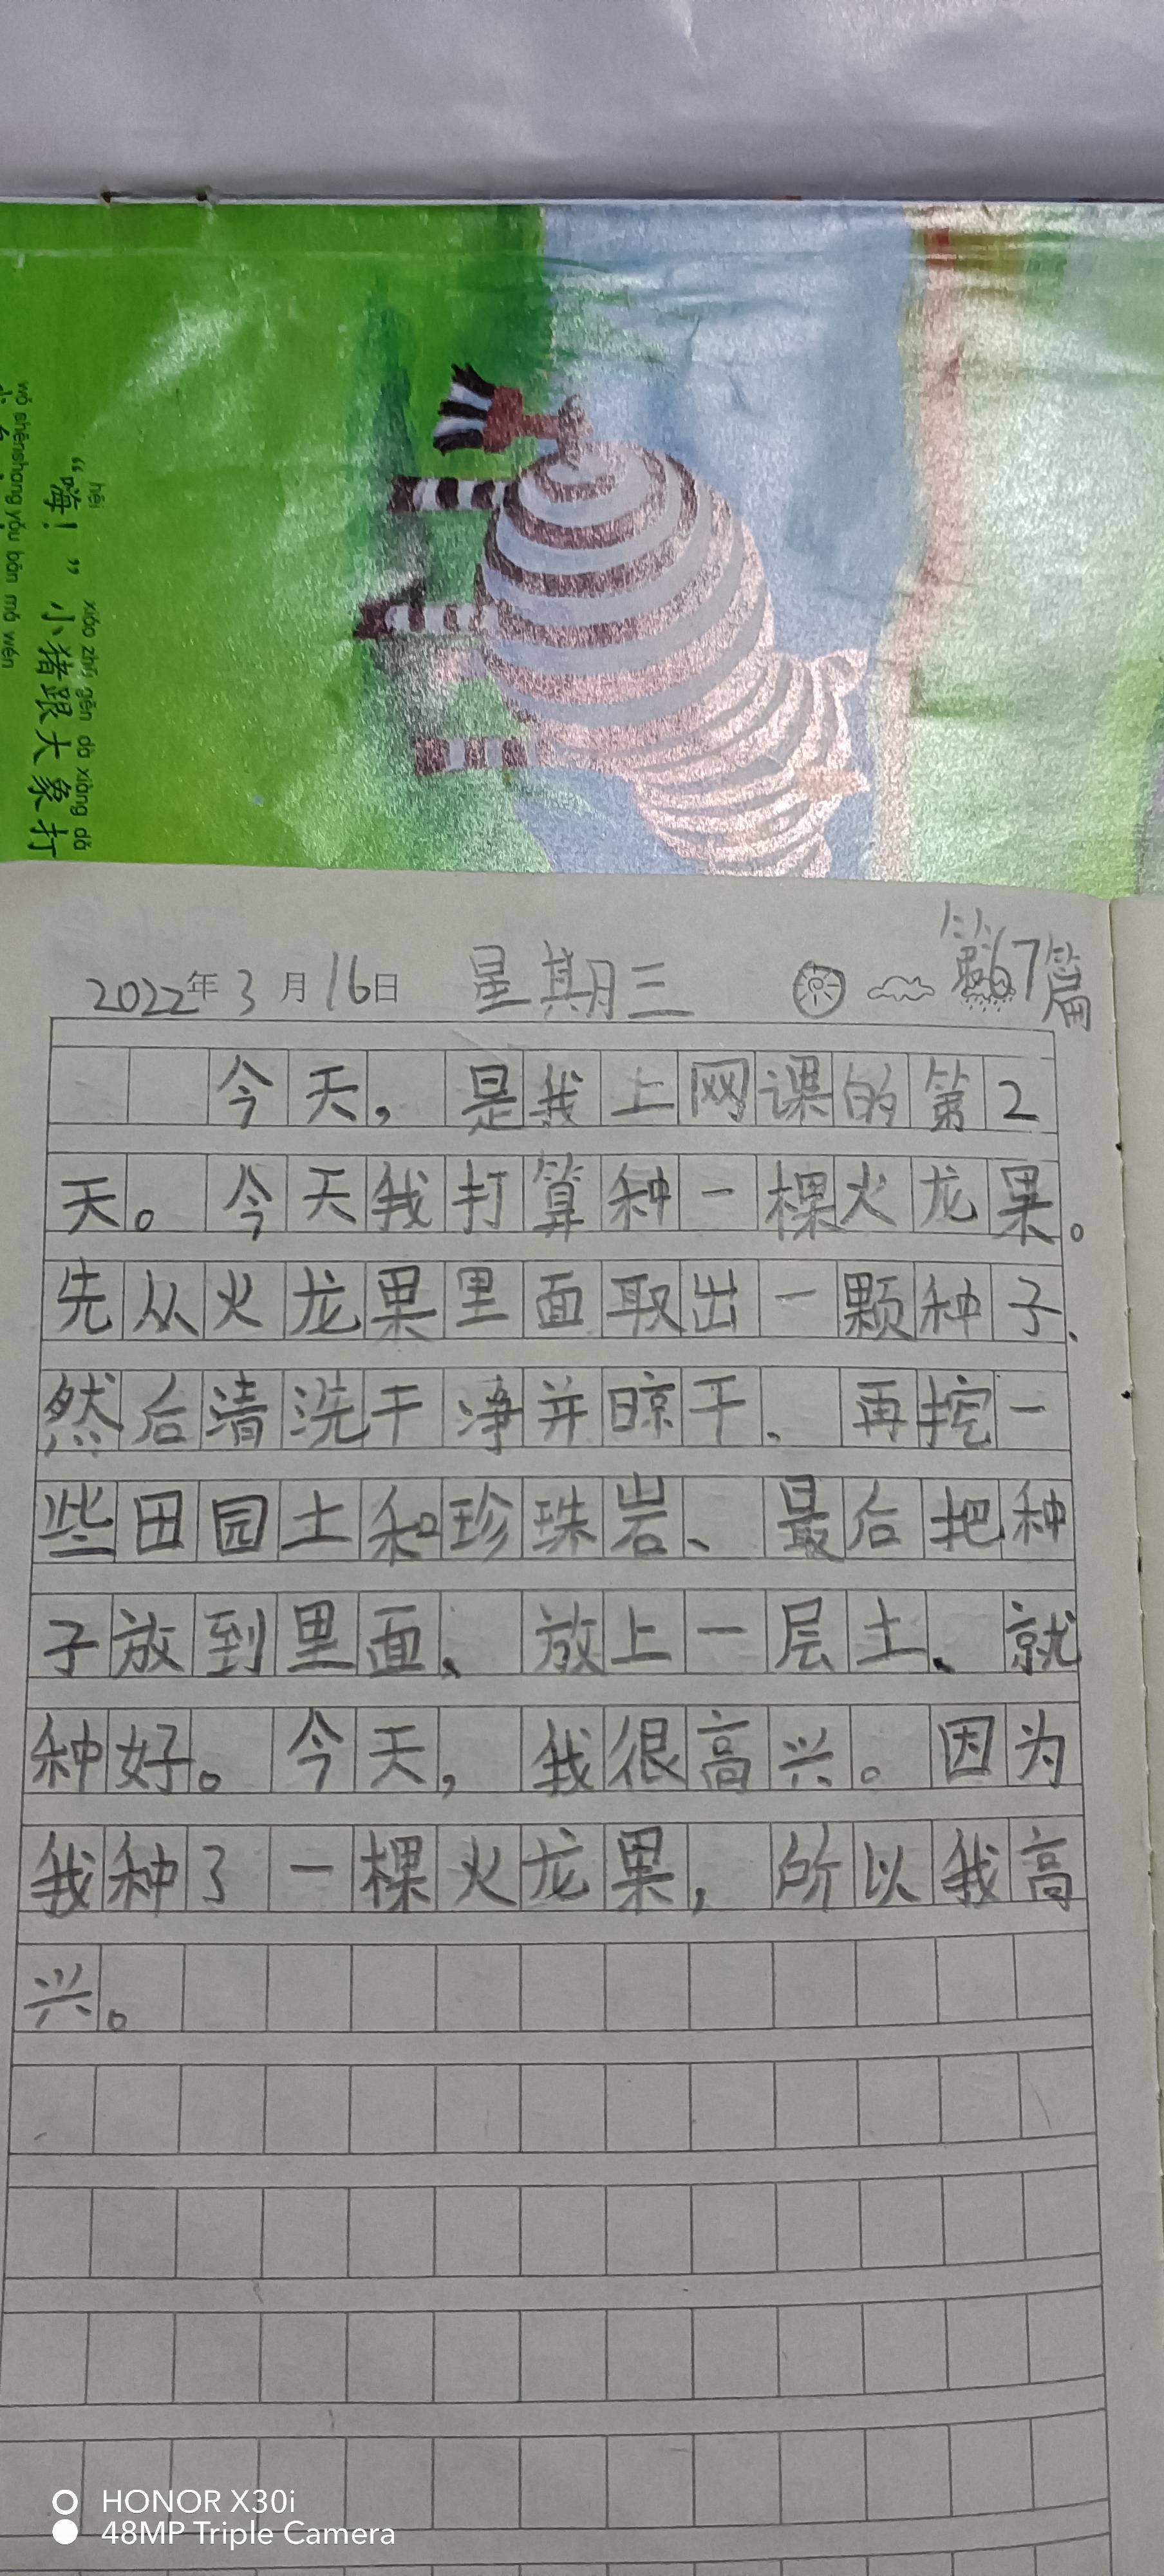 hēi
xiǎo zhū gēn dà xiàng dǎ
“嗨！”小猪跟大象打
wǒ shēnshang yǒu bān mǎ wén
2022年3月16日 星期三 第67篇
今天，是我上网课的第2
天。今天我打算种一棵火龙果。
先从火龙果里面取出一颗种子、
然后清洗干净并晾干、再挖一
些田园土和珍珠岩、最后把种
子放到里面、放上一层土、就
种好。今天，我很高兴。因为
我种了一棵火龙果，所以我高
兴。
HONOR X30i
48MP Triple Camera